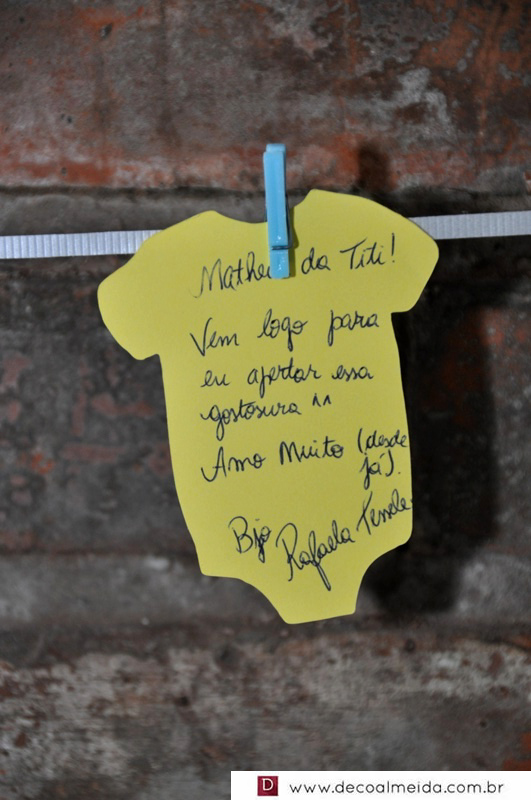 Mathe da Titi!
Vem logo para
eu apertar essa
gostosura ^^
Amo Muito (desde
já).
Bjo Rafaela
www.decoalmeida.com.br